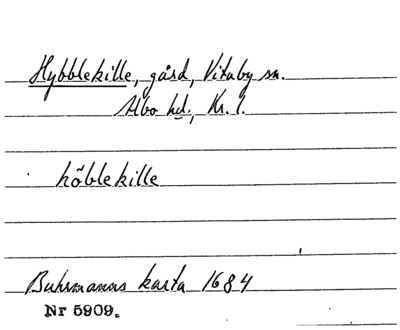 Hybblekille, gård, Vitaby sn.
Albo hd., Kr. l.
hõblekille
Buhrmanns karta 1684
Nr 5909.